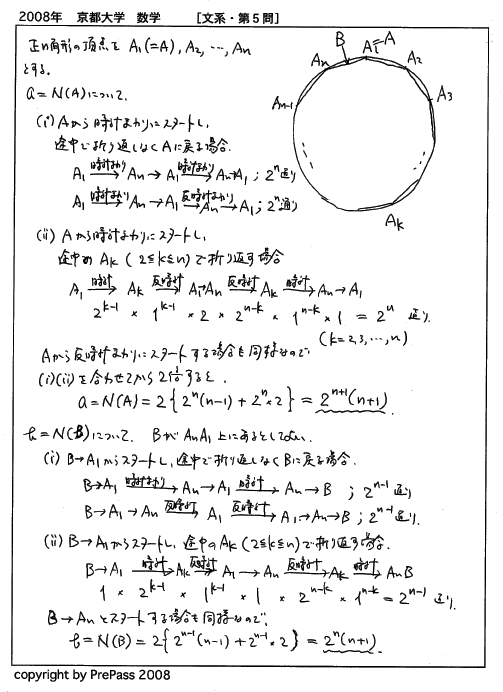 2008年 京都大学 数学 [文系・第5問]
正n角形の頂点を A₁(=A), A₂, …, Aₙ
とする。
a = N(A) について、
(i) Aから時計まわりにスタートし、
途中で折り返しなくAに戻る場合.
A₁ 時計まわり→ Aₙ → A₁ 時計まわり→ Aₙ→A₁ ; 2ⁿ通り
A₁ 時計まわり→ Aₙ → A₁ 反時計まわり→ Aₙ→A₁ ; 2ⁿ通り
(ii) Aから時計まわりにスタートし、
途中の Aₖ (2≦k≦n) で折り返す場合
A₁ 時計→ Aₖ 反時計→ A₁→Aₙ 反時計→ Aₖ 時計→ Aₙ→A₁
2ᵏ⁻¹ × 1ᵏ⁻¹ × 2 × 2ⁿ⁻ᵏ × 1ⁿ⁻ᵏ × 1 = 2ⁿ 通り.
(k=2,3,…,n)
Aから反時計まわりにスタートする場合も同様なので
(i)(ii)を合わせてから2倍すると.
a = N(A) = 2{2ⁿ(n-1) + 2ⁿ×2} = 2ⁿ⁺¹(n+1).
b = N(B) について. BがAₙA₁上にあるとしてよい.
(i) B→A₁からスタートし、途中で折り返しなくBに戻る場合.
B→A₁ 時計まわり→ Aₙ → A₁ 時計→ Aₙ→B ; 2ⁿ⁻¹通り
B→A₁→Aₙ 反時計→ A₁ 反時計→ A₁→Aₙ→B ; 2ⁿ⁻¹通り.
(ii) B→A₁からスタートし、途中のAₖ (2≦k≦n) で折り返す場合.
B→A₁ 時計→ Aₖ 反時計→ A₁→Aₙ 反時計→ Aₖ 時計→ AₙB
1 × 2ᵏ⁻¹ × 1ᵏ⁻¹ × 1 × 2ⁿ⁻ᵏ × 1ⁿ⁻ᵏ = 2ⁿ⁻¹ 通り.
B→Aₙとスタートする場合も同様なので、
b = N(B) = 2{2ⁿ⁻¹(n-1) + 2ⁿ⁻¹×2} = 2ⁿ(n+1).
B
A₁=A
Aₙ
A₂
Aₙ₋₁
A₃
Aₖ
copyright by PrePass 2008